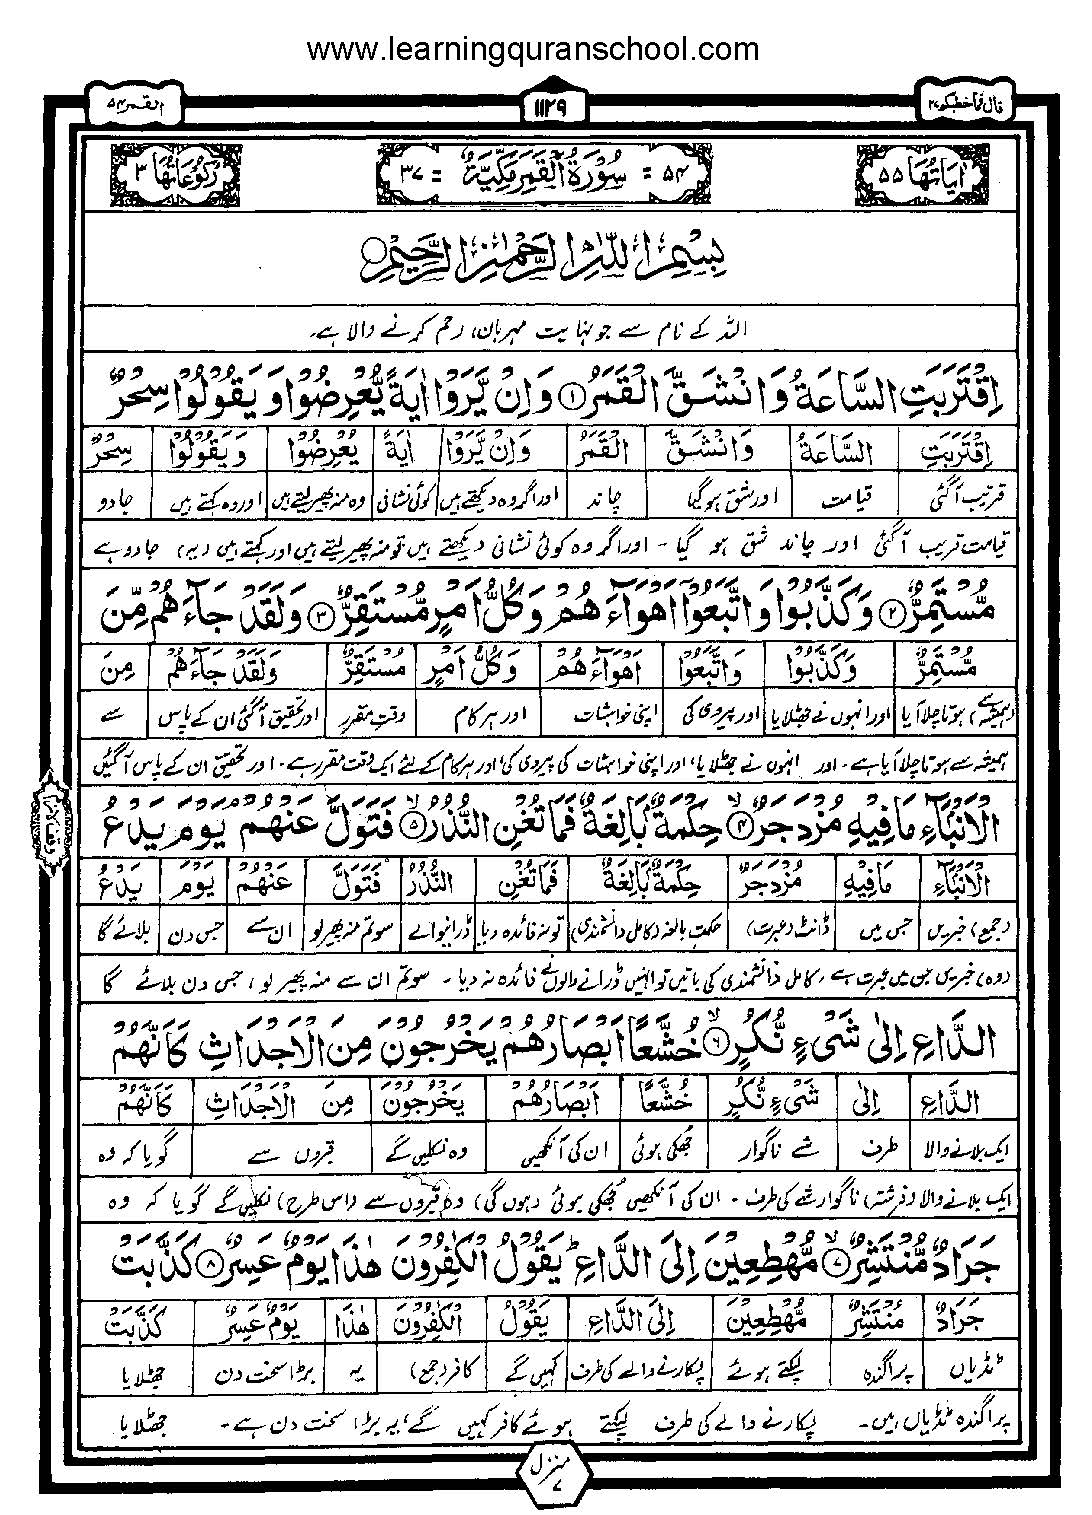 www.learningquranschool.com
القمر ۵۴
۱۱۲۹
قال فما خطبکم ۲۷
رکوعاتها ۳
۵۴ = سُوْرَةُ الْقَمَرِ مَكِّيَّةٌ = ۳۷
اٰیَاتُهَا ۵۵
بِسْمِ اللّٰهِ الرَّحْمٰنِ الرَّحِیْمِ
اللہ کے نام سے جو نہایت مہربان، رحم کرنے والا ہے۔
اِقْتَرَبَتِ السَّاعَةُ وَ انْشَقَّ الْقَمَرُ ۱ وَ اِنْ یَّرَوْا اٰیَةً یُّعْرِضُوْا وَ یَقُوْلُوْا سِحْرٌ
اِقْتَرَبَتِ السَّاعَةُ وَ انْشَقَّ الْقَمَرُ وَ اِنْ یَّرَوْا اٰیَةً یُعْرِضُوْا وَ یَقُوْلُوْا سِحْرٌ
قریب آگئی قیامت اور شق ہوگیا چاند اور اگر وہ دیکھتے ہیں کوئی نشانی وہ منہ پھیر لیتے ہیں اور وہ کہتے ہیں جادو
قیامت قریب آگئی اور چاند شق ہو گیا - اور اگر وہ کوئی نشانی دیکھتے ہیں تو منہ پھیر لیتے ہیں اور کہتے ہیں (یہ) جادو ہے
مُّسْتَمِرٌّ ۲ وَ كَذَّبُوْا وَ اتَّبَعُوْا اَهْوَآءَهُمْ وَ كُلُّ اَمْرٍ مُّسْتَقِرٌّ ۳ وَ لَقَدْ جَآءَهُمْ مِّنَ
مُّسْتَمِرٌّ وَ كَذَّبُوْا وَ اتَّبَعُوْا اَهْوَآءَهُمْ وَ كُلُّ اَمْرٍ مُسْتَقِرٌّ وَ لَقَدْ جَآءَهُمْ مِنَ
(ہمیشہ سے) ہوتا چلا آیا اور انہوں نے جھٹلایا اور پیروی کی اپنی خواہشات اور ہر کام وقت مقرر اور تحقیق آگئی ان کے پاس سے
ہمیشہ سے ہوتا چلا آیا ہے۔ اور انہوں نے جھٹلایا، اور اپنی خواہشات کی پیروی کی، اور ہر کام کے لئے ایک وقت مقرر ہے۔ اور تحقیق ان کے پاس آگئیں
الْاَنْۢبَآءِ مَا فِیْهِ مُزْدَجَرٌ ۴ حِكْمَةٌۢ بَالِغَةٌ فَمَا تُغْنِ النُّذُرُ ۵ فَتَوَلَّ عَنْهُمْ یَوْمَ یَدْعُ
الْاَنْۢبَآءِ مَا فِیْهِ مُزْدَجَرٌ حِكْمَةٌ بَالِغَةٌ فَمَا تُغْنِ النُّذُرُ فَتَوَلَّ عَنْهُمْ یَوْمَ یَدْعُ
(جمع) خبریں جس میں ڈانٹ (عبرت) حکمت بالغہ (کامل دانشمندی) تو نہ فائدہ دیا ڈرانیوالے سو تم منہ پھیر لو ان سے جس دن بلائے گا
(وہ) خبریں جن میں عبرت ہے، کامل دانشمندی کی باتیں تو انہیں ڈرانے والوں نے فائدہ نہ دیا - سو تم ان سے منہ پھیر لو، جس دن بلائے گا
الدَّاعِ اِلٰى شَیْءٍ نُّكُرٍ ۶ خُشَّعًا اَبْصَارُهُمْ یَخْرُجُوْنَ مِنَ الْاَجْدَاثِ كَاَنَّهُمْ
الدَّاعِ اِلٰى شَیْءٍ نُّكُرٍ خُشَّعًا اَبْصَارُهُمْ یَخْرُجُوْنَ مِنَ الْاَجْدَاثِ كَاَنَّهُمْ
ایک بلانے والا طرف شے ناگوار جھکی ہوئی ان کی آنکھیں وہ نکلیں گے قبروں سے گویا کہ وہ
ایک بلانے والا (فرشتہ) ناگوار شے کی طرف - ان کی آنکھیں جھکی ہوئی (ہوں گی) وہ قبروں سے (اس طرح) نکلیں گے گویا کہ وہ
جَرَادٌ مُّنْتَشِرٌ ۷ مُّهْطِعِیْنَ اِلَى الدَّاعِ ؕ یَقُوْلُ الْكٰفِرُوْنَ هٰذَا یَوْمٌ عَسِرٌ ۸ كَذَّبَتْ
جَرَادٌ مُنْتَشِرٌ مُّهْطِعِیْنَ اِلَى الدَّاعِ یَقُوْلُ الْكٰفِرُوْنَ هٰذَا یَوْمٌ عَسِرٌ كَذَّبَتْ
ٹڈیاں پراگندہ لپکتے ہوئے پکارنے والے کی طرف کہیں گے کافر (جمع) یہ بڑا سخت دن جھٹلایا
پراگندہ ٹڈیاں ہیں۔ پکارنے والے کی طرف لپکتے ہوئے کافر کہیں گے، یہ بڑا سخت دن ہے۔ جھٹلایا
منزل ۷